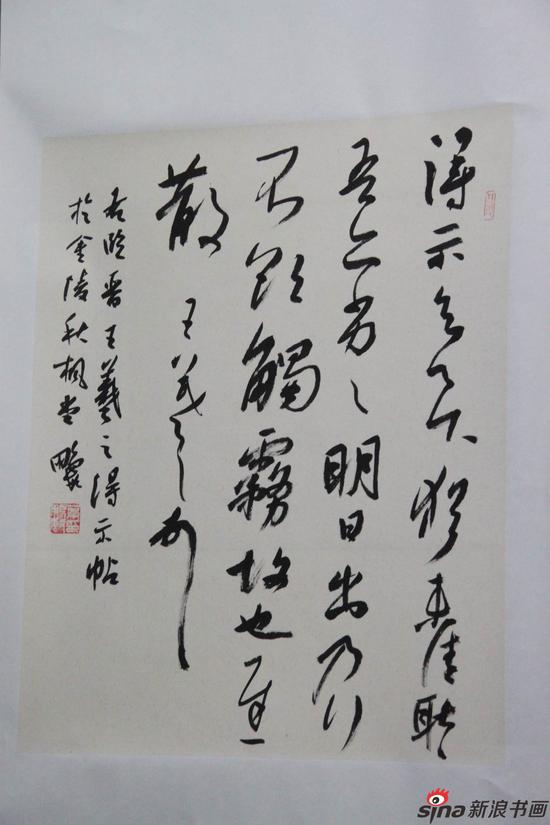 得示知足下猶未佳耿々
吾亦劣々明日出乃行
不欲觸霧故也遲
散 王羲之頓首
右臨晉王羲之得示帖
於金陵秋楓堂
sina新浪书画